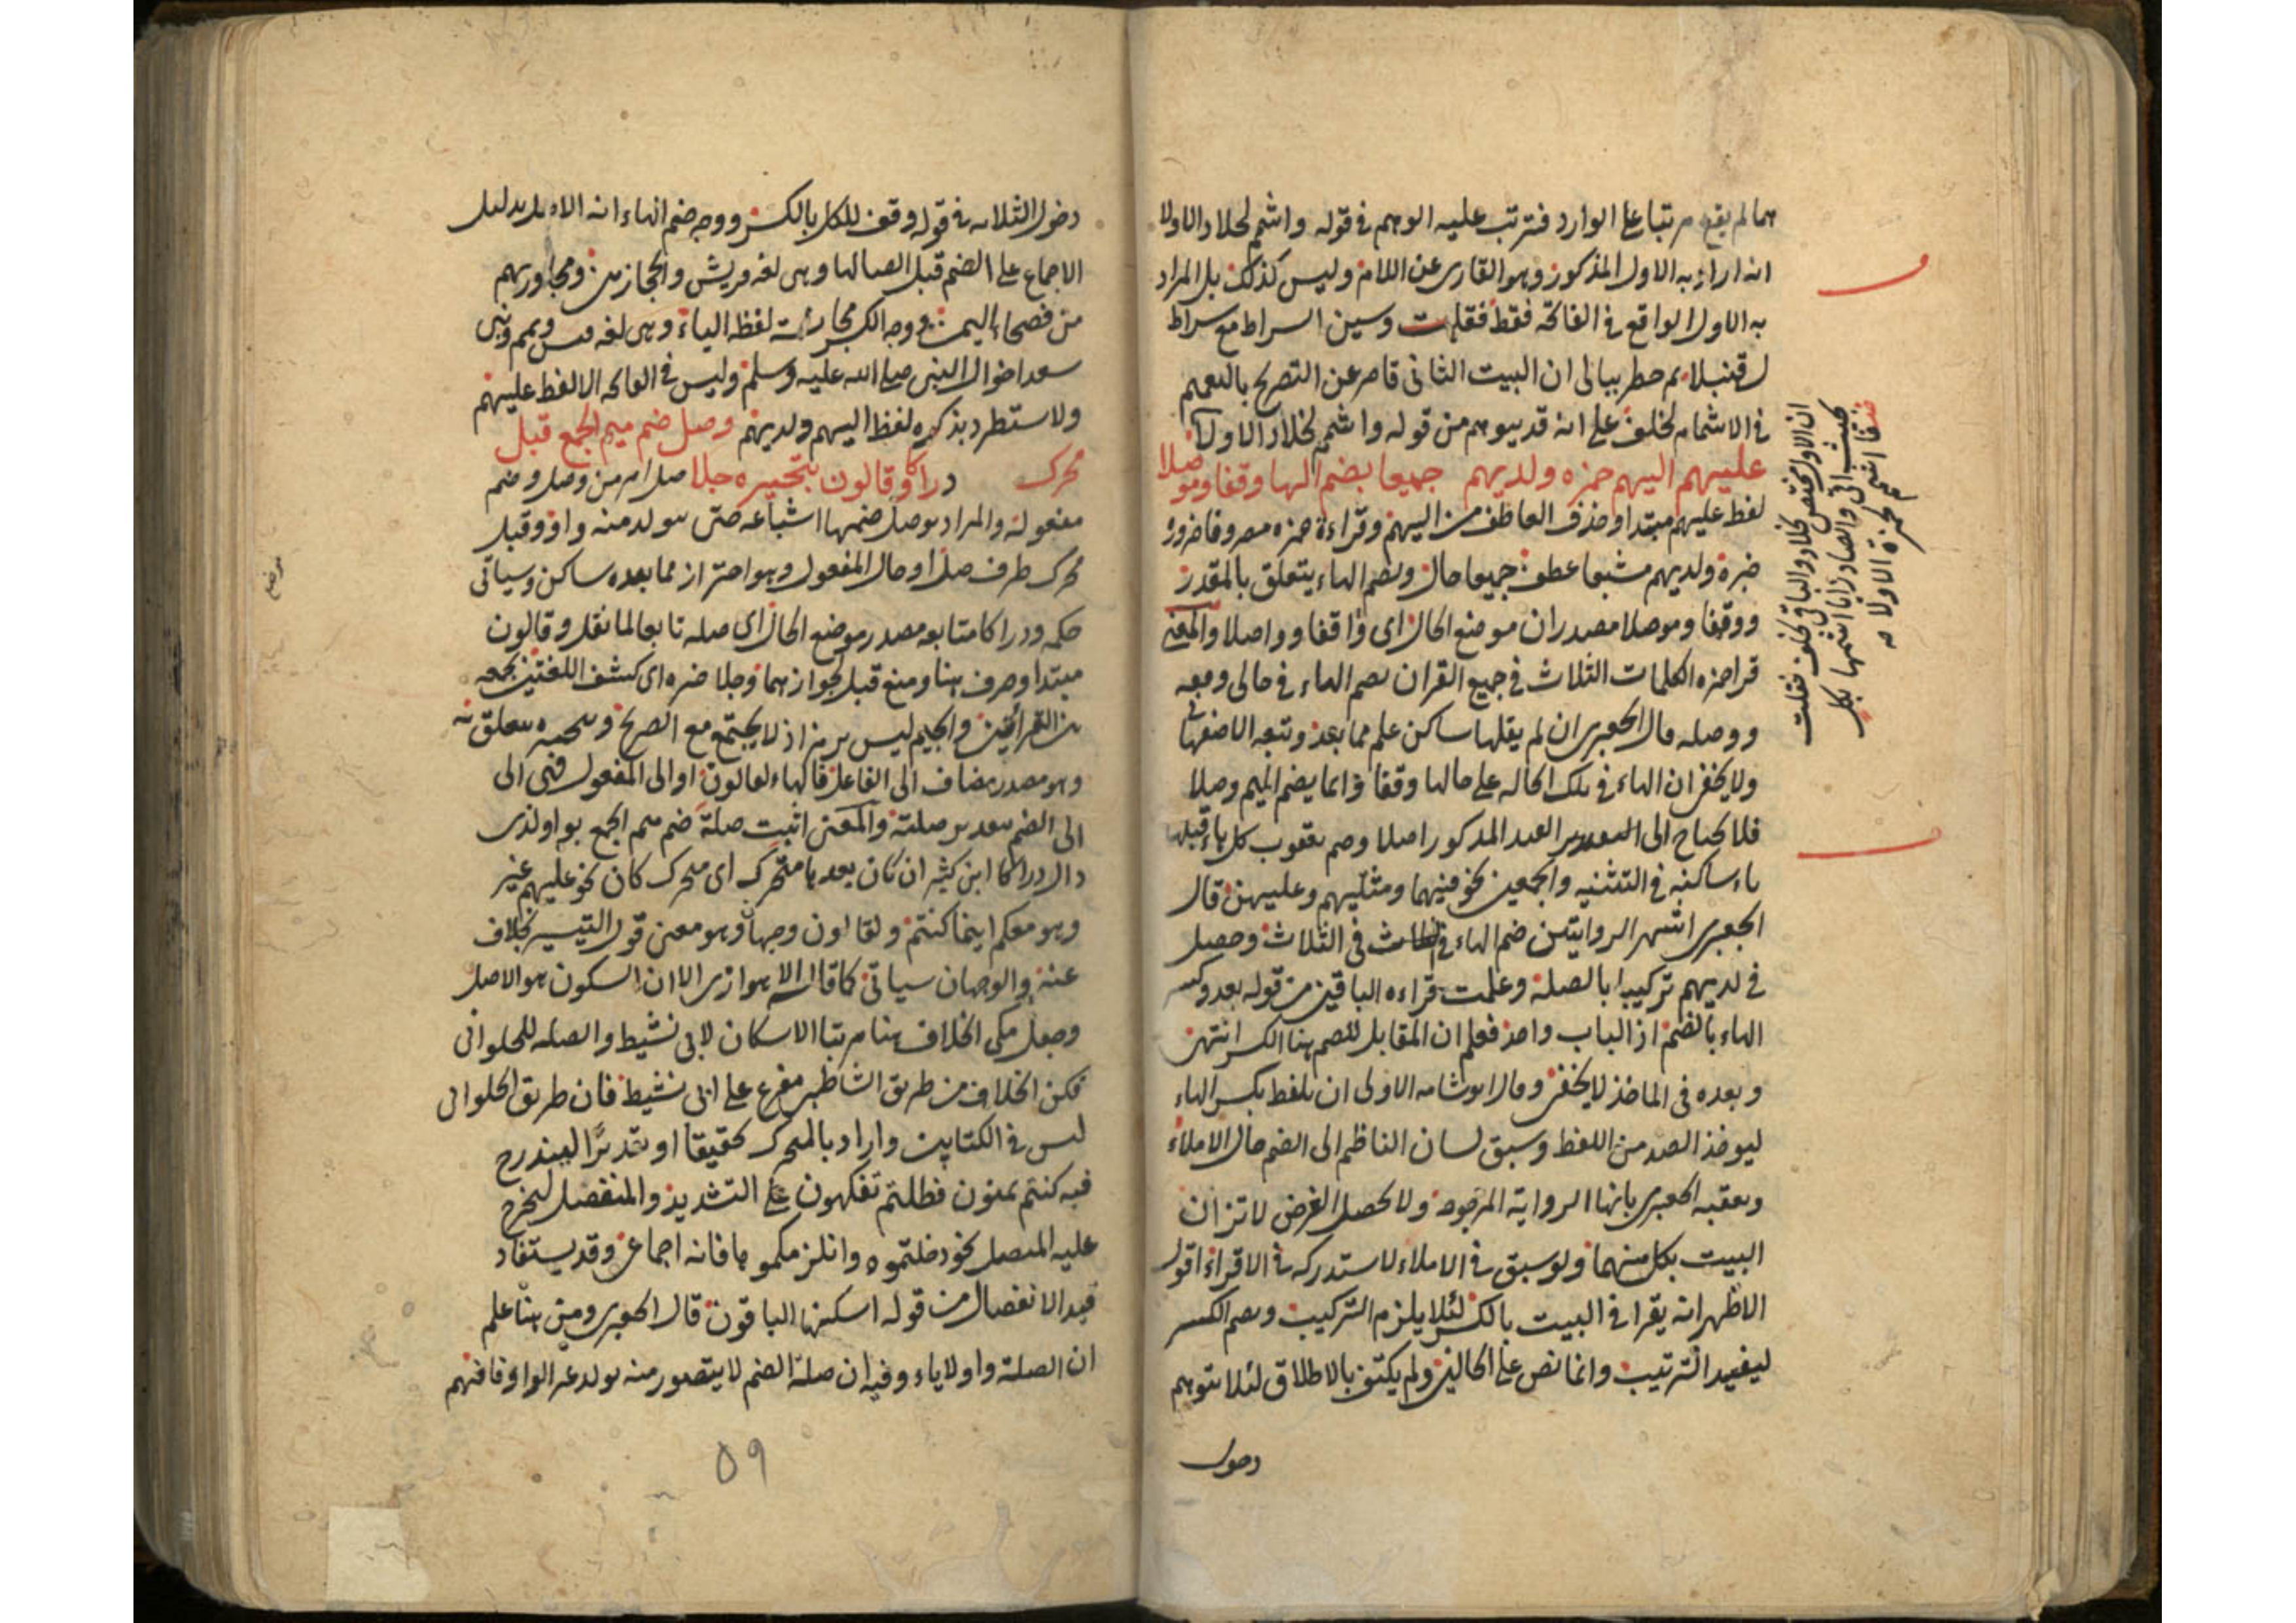 هما لم يقع مرتبا على الوارد فترتب عليه الوهم في قوله واشم لخلاد الاولا
انه اراد به الاول المذكور وهو القارى عن اللام وليس كذلك بل المراد
به الاول الواقع في الفاتحة فقط فقلت وسين السراط مع سراط
لقنبلا ثم خطر ببالى ان البيت الثانى قاصر عن التصريح بالتعميم
في الاشمام لخلف على انه قد يوهم من قوله واشم لخلاد الاولا
عليهم اليهم حمزه ولديهم جميعا بضم الها وقفا وموصلا
لفظ عليهم مبتدا وحذف العاطف من اليهم وقراءة حمزه مصروفا ضرورة
خبره ولديهم مشبعا عطف جميعا حال وبضم الهاء يتعلق بالمقدر
ووقفا وموصلا مصدران موضع الحال اى واقفا وواصلا والمعنى
قرا حمزه الكلمات الثلاث في جميع القران بضم الهاء في حالى وقفه
ووصله قال الجعبرى ان لم يقلها ساكن علم مما بعد وتتبعه الاصفهانى
ولا يخفى ان الهاء في تلك الحاله على حالها وقفا وانما يضم الميم وصلا
فلا يحتاج الى القيد المذكور اصلا وضم يعقوب كل هاء قبلها
ياء ساكنه في التثنيه والجمعين نحو فيهما ومثليهم وعليهن قال
الجعبرى اشهر الروايتين ضم الهاء في الثلاث وحصل
في لديهم تركيبا بالصلة وعلمت قراءه الباقين من قوله بعد وكسر
الهاء بالضم اذ الباب واحد فعلم ان المقابل للضم هنا الكسر انتهى
وبعده في الماخذ لا يخفى وقال ابو شامه الاولى ان يلفظ بكسر الهاء
ليوخذ الضد من اللفظ وسبق لسان الناظم الى الضم حال الاملاء
وتعقبه الجعبرى بانها الرواية المرجوحة ولا يحصل الغرض لاتزان
البيت بكل منهما ولو سبق في الاملاء لاستدركه في الاقراء اقول
الاظهر انه يقرا في البيت بالكسر لئلا يلزم التركيب وبضم الكسر
ليفيد الترتيب وانما نص على الحالين ولم يكتف بالاطلاق لئلا يتوهم
دخول
ان الاول مختص بخلاد والباقى بخلف فقلت
بحيث اتى والصاد زايا اشمها بكل
خلفا اشمم لحمزة الاولا صح
دخول الثلاثه في قوله وقف للكل بالكسر ووجه ضم الهاء انه الاصل بدليل
الاجماع على الضم قبل اتصالها وهى لغه قريش والحجازيين ومجاوريهم
من فصحاء اليمن ووجه الكسر مجانسة لفظ الياء وهى لغه قيس وتميم وبنى
سعد اخوال النبى صلى الله عليه وسلم وليس في الفاتحه الا لفظ عليهم
ولاستطرد بذكره لفظ اليهم ولديهم وصل ضم ميم الجمع قبل
محرك دراكا وقالون بتخييره جلا صل امر من وصل وضم
مفعوله والمراد بوصل ضمها اشباعه حتى يتولد منه واو وقبل
محرك ظرف صل او حال المفعول وهو احتراز مما بعده ساكن وسياتى
حكمه ودراكا متابعه مصدر موضع الحال اى صله تابعا لما نقل وقالون
مبتدا وصرف هنا ومنع قبل لجوازهما وجلا خبره اى كشف اللغتين بجمعه
بين القراتين والجيم ليس برمز اذ لا يجتمع مع الصريح وبتخييره يتعلق به
وهو مصدر مضاف الى الفاعل فالهاء لقالون او الى المفعول فهى الى
الى الضم بتقدير صلته والمعنى اثبت صلة ضم ميم الجمع بواو لذى
دال دراكا ابن كثير ان كان بعدها متحرك اى محرك كان نحو عليهم غير
وهو معكم اينما كنتم ولقالون وجهان وهو معنى قول التيسير بخلاف
عنه والوجهان سياتى كما قال الاهوازى الا ان السكون هو الاصل
وجعل مكى الخلاف هنا مرتبا الاسكان لابى نشيط والصله للحلوانى
فكن الخلاف من طريق الشاطبى مفرع على ابى نشيط فان طريق الحلوانى
ليس في الكتابين واراد بالمحرك تحقيقا او تقديرا ليندرج
فيه كنتم تمنون فظلتم تفكهون على التشديد والمنفصل ليخرج
عليه المتصل نحو دخلتموه وانلزمكموها فانه اجماعى وقد يستفاد
قيد الانفصال من قوله اسكنها الباقون قال الجعبرى ومن هنا علم
ان الصلة واو لا ياء وفيه ان صلة الضم لا يتصور منه تولد غير الواو فافهم
موضع
٥٩